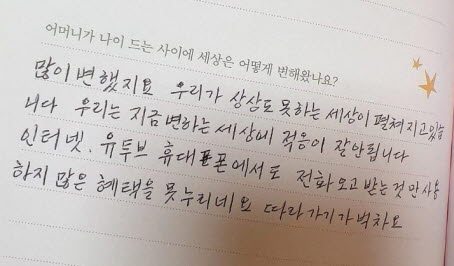 어머니가 나이 드는 사이에 세상은 어떻게 변해왔나요?
많이 변했지요 우리가 상상도 못하는 세상이 펼쳐지고있습
니다 우리는 지금변하는 세상에 적응이 잘안됩니다
인터넷. 유투브 휴대폰에서도 전화 오고 받는것만 사용
하지 많은 혜택을 못누리네요 따라가기가 벅차요